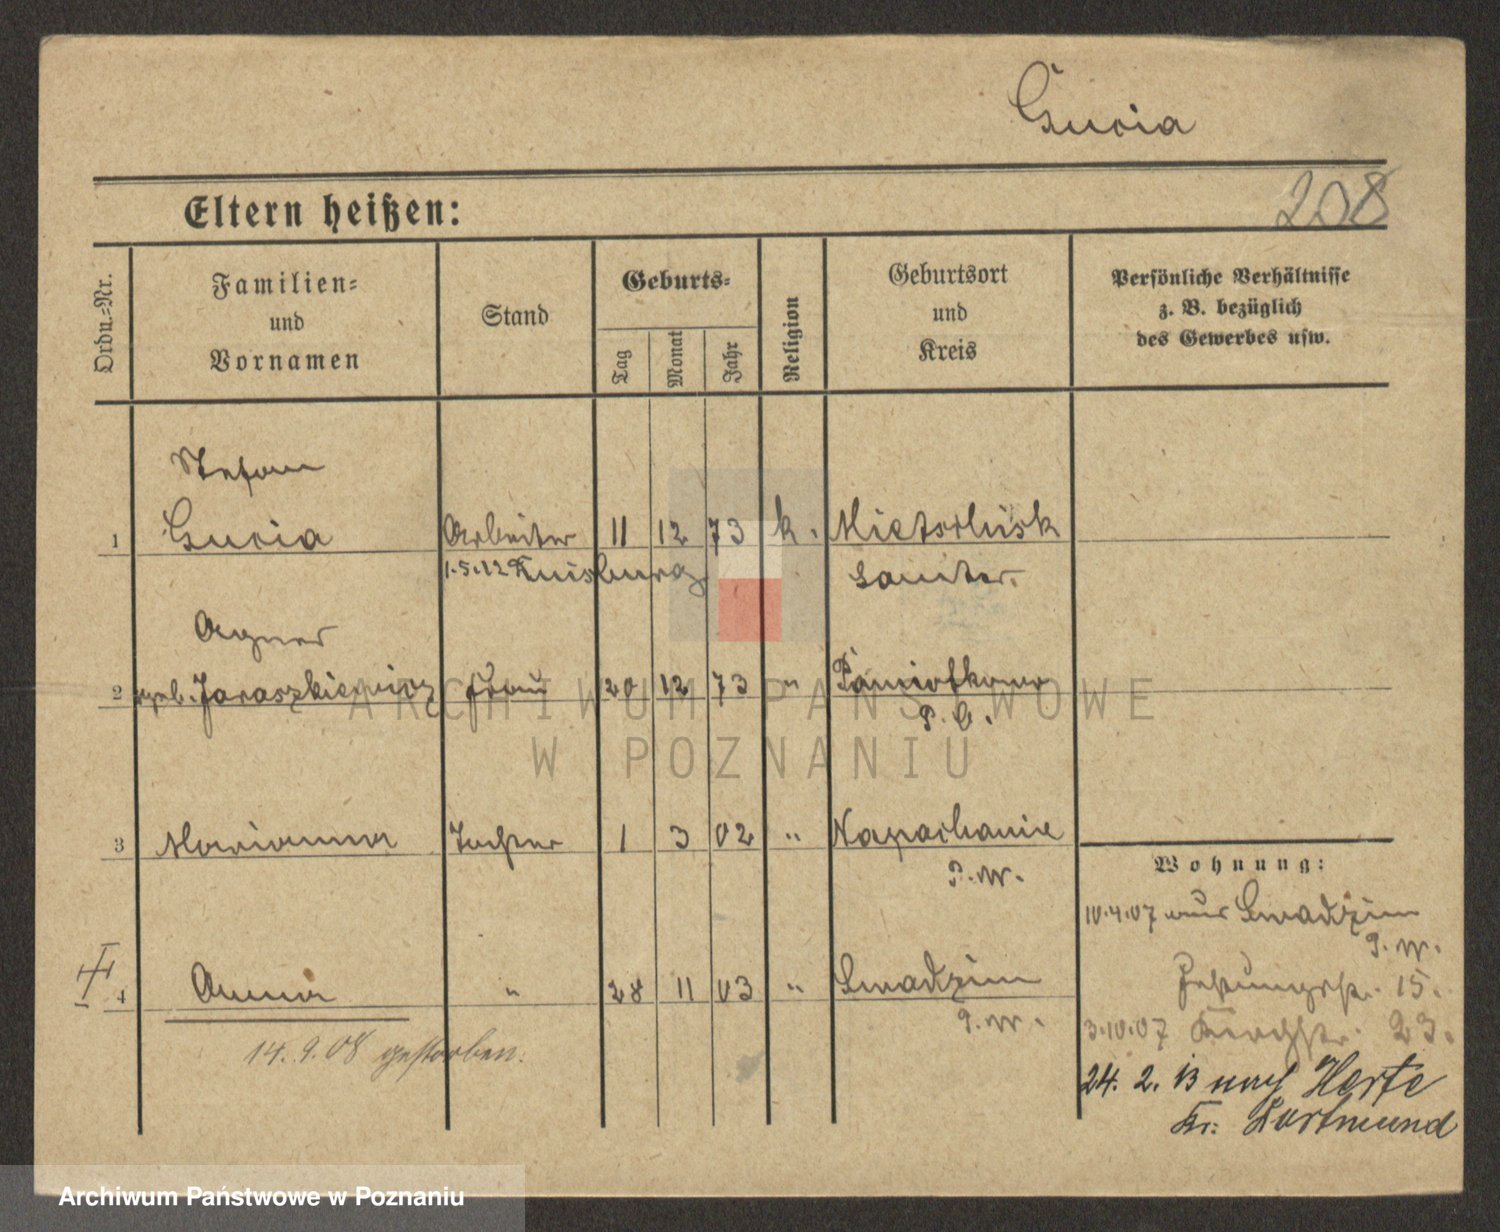 Gucia
208
Eltern heißen:
Ordn.=Nr.
Familien=
und
Vornamen
Stand
Geburts=
Tag
Monat
Jahr
Religion
Geburtsort
und
Kreis
Persönliche Verhältnisse
z. B. bezüglich
des Gewerbes usw.
Stefan
1 Gucia Arbeiter 11 12 73 k.
1.5.12 Duisburg Samter.
Agnes
2 geb. Jaraszkiewicz Frau 20 12 73 " Pamiatkowo
P. O.
3 Marianna Tochter 1 3 02 " Napachanie
P. W.
Wohnung:
10.4.07 aus Swadzim
P. W.
15.
4 Anna " 28 11 03 " Swadzim
P. W.
3.10.07 23.
14. 9. 08 gestorben.
24. 2. 13 nach
Kr. Dortmund
ARCHIWUM PAŃSTWOWE
W POZNANIU
Archiwum Państwowe w Poznaniu